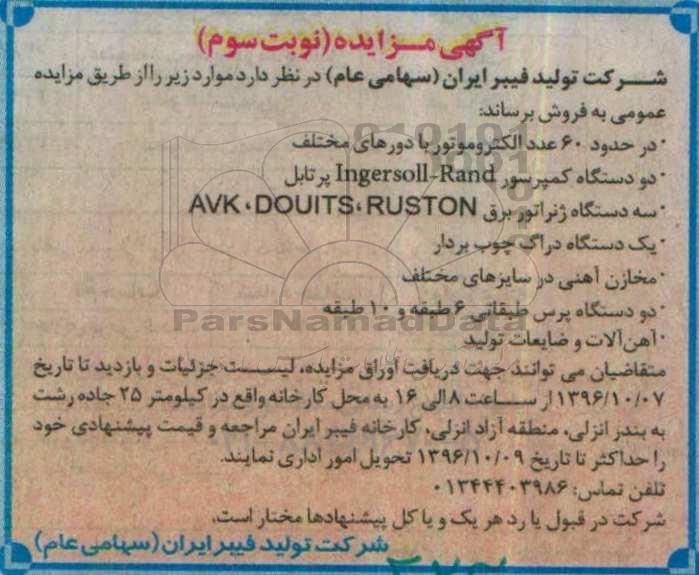 آگهی مزایده (نوبت سوم)
شرکت تولید فیبر ایران (سهامی عام) در نظر دارد موارد زیر را از طریق مزایده
عمومی به فروش برساند:
٠در حدود ۶۰ عدد الکتروموتور با دورهای مختلف
٠دو دستگاه کمپرسور Ingersoll-Rand پرتابل
٠سه دستگاه ژنراتور برق AVK ،DOUITS، RUSTON
٠یک دستگاه دراگ چوب بردار
٠مخازن آهنی در سایزهای مختلف
٠دو دستگاه پرس طبقاتی ۶ طبقه و ۱۰ طبقه
ParsNamadData
٠آهن‌آلات و ضایعات تولید
متقاضیان می توانند جهت دریافت اوراق مزایده، لیست جزئیات و بازدید تا تاریخ
۱۳۹۶/۱۰/۰۷ از ساعت ۸ الی ۱۶ به محل کارخانه واقع در کیلومتر ۲۵ جاده رشت
به بندر انزلی، منطقه آزاد انزلی، کارخانه فیبر ایران مراجعه و قیمت پیشنهادی خود
را حداکثر تا تاریخ ۱۳۹۶/۱۰/۰۹ تحویل امور اداری نمایند.
تلفن تماس: ۰۱۳۴۴۴۰۳۹۸۶
شرکت در قبول یا رد هر یک و یا کل پیشنهادها مختار است.
شرکت تولید فیبر ایران (سهامی عام)